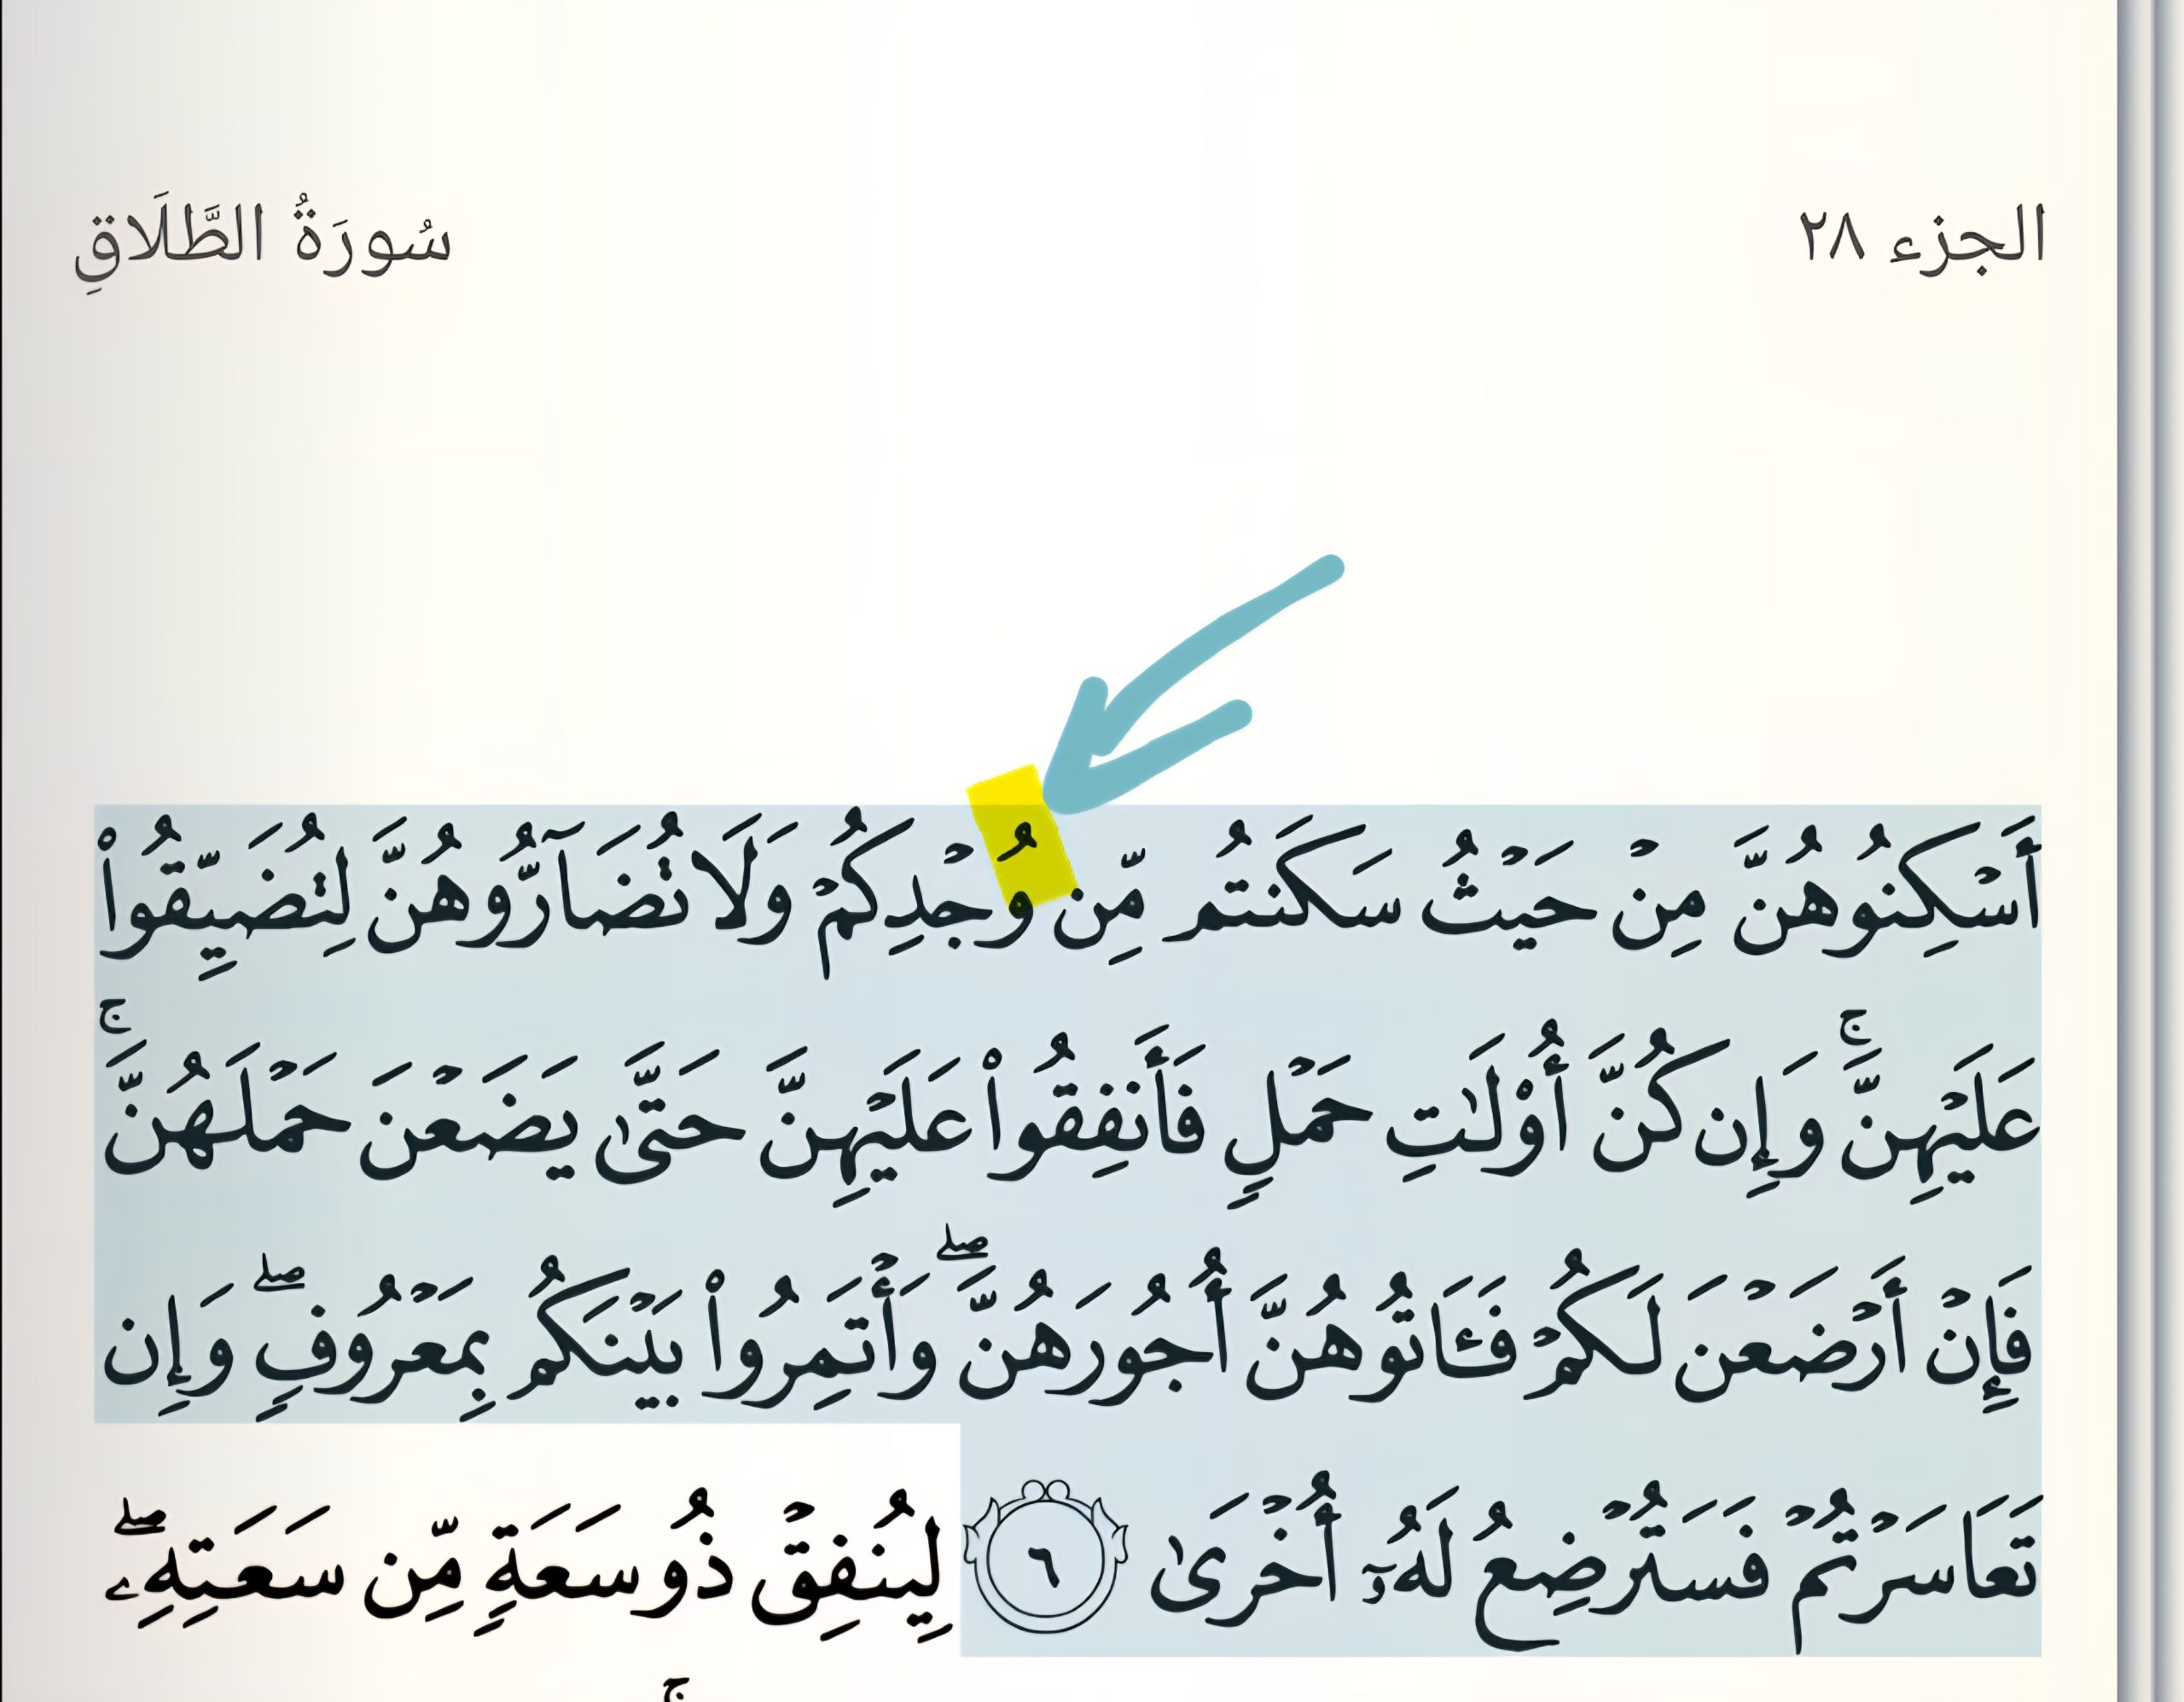 الجزء ٢٨ سُورَةُ الطَّلَاقِ
أَسْكِنُوهُنَّ مِنْ حَيْثُ سَكَنتُم مِّن وُجْدِكُمْ وَلَا تُضَآرُّوهُنَّ لِتُضَيِّقُوا۟
عَلَيْهِنَّ ۚ وَإِن كُنَّ أُو۟لَـٰتِ حَمْلٍ فَأَنفِقُوا۟ عَلَيْهِنَّ حَتَّىٰ يَضَعْنَ حَمْلَهُنَّ ۚ
فَإِنْ أَرْضَعْنَ لَكُمْ فَـَٔاتُوهُنَّ أُجُورَهُنَّ ۖ وَأْتَمِرُوا۟ بَيْنَكُم بِمَعْرُوفٍ ۖ وَإِن
تَعَاسَرْتُمْ فَسَتُرْضِعُ لَهُۥٓ أُخْرَىٰ ٦ لِيُنفِقْ ذُو سَعَةٍ مِّن سَعَتِهِۦ ۖ